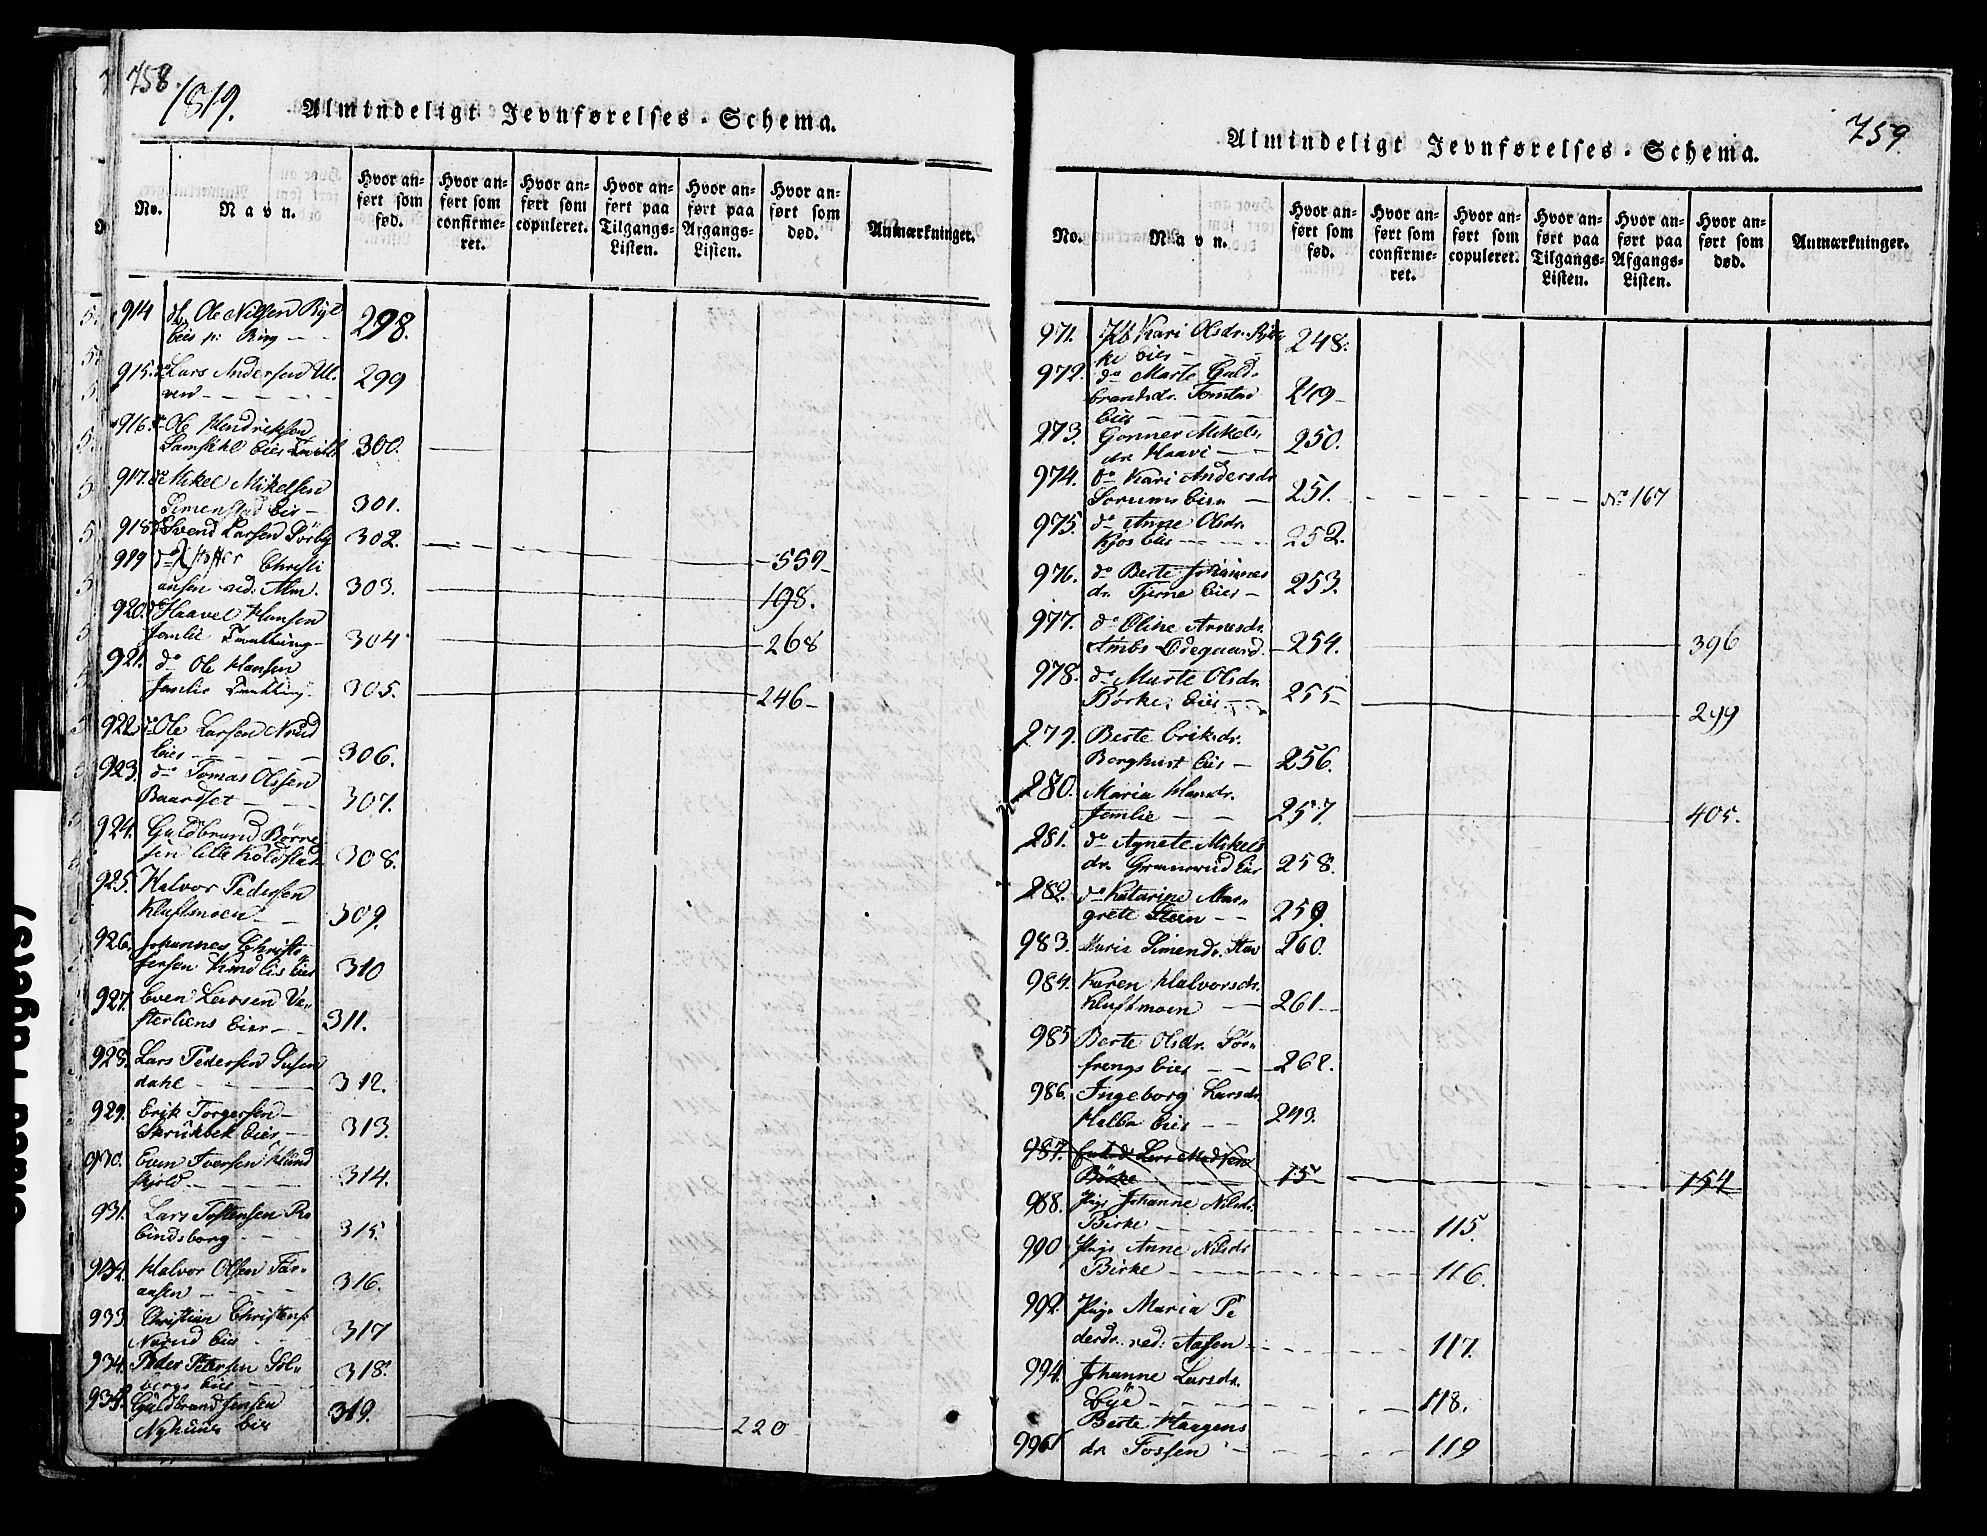 758.
1819.
Almindeligt Jevnførelses-Schema.
No.
Navn.
Hvor an-
ført som
fød.
Hvor an-
ført som
confirme-
ret.
Hvor an-
ført som
copuleret.
Hvor an-
ført paa
Tilgangs-
Listen.
Hvor an-
ført paa
Afgangs-
Listen.
Hvor an-
ført som
død.
Anmærkninger.
914 Ole Nilsen
Eies p: Ring 298.
915. do Lars Andersen Ul-
ven 299
916. do Ole Hendriksen
Eies 300.
917. do Mikel Mikelsen
Simenstad Eie 301.
918 do Svend Larsen Törby 302.
919 do Christi
ansen ved. Alm. 303. 559
920. do Haavel Hansen
304 198.
268
921. do Ole Hansen
305. 246
922. do Ole Larsen Nrud
Eies 306.
923. do Tomas Olssen
Baardset 307.
924. Guldbrand Börre
sen lille Koldstad 308.
925. Halvor Pedersen
Kluftmoen 309.
926. Johannes Christo
fersen Eies 310
927. Even Larsen Ve-
sterliens Eier 311.
928. Lars Pedersen
dahl 312.
929. Erik Torgersen
Skrukbek Eies 313.
930. Even Iversen
skjold 314.
931. Lars Tostensen Ro
bindsborg 315.
932. Halvor Olsen Far-
aasen 316.
933. Christian Christens:
Narud Eie 317
934. Peder Petersen Sol-
bergs Eie 318.
935. Guldbrand Jensen
Nyhuus Eie 319. 220
759.
Almindeligt Jevnførelses-Schema.
No.
Navn.
Hvor an-
ført som
fød.
Hvor an-
ført som
confirme-
ret.
Hvor an-
ført som
copuleret.
Hvor an-
ført paa
Tilgangs-
Listen.
Hvor an-
ført paa
Afgangs-
Listen.
Hvor an-
ført som
død.
Anmærkninger.
971. Kari Olsdr.
ke Eies 248.
972. do Marte Guld-
brandsdr. Tomstad
Eies 249
273. Gonner Mikels
dr. Haavi 250.
974. do Kari Andersdr
Sorums Eie 251. No 167
975. do Anne Olsdr.
Kjos Eies 252.
976. do Berte Johannes
dr. Tjerne Eies 253.
977. do Oline Arnesdr.
Ambs Ödegaard 254. 396
978. do Marte Olsdr.
Börke, Eies 255 299
279. Berte Eriksdr.
Eies 256.
280. Maria Hansdr.
257. 405.
281. do Agnete Mikels
dr. Grønerud Eier 258.
282. do Katarine Mar-
grete Steen 259.
983. Maria Simendr. Stav 260.
984. Karen Halvorsdr.
Kluftmoen 261
985 Berte Olsdr. Tör-
frengs Eies 262.
986. Ingeborg Larsdr.
Eies 243.
987. Lars Madsen
Börke 15 154
988. Pige Johanne Nilsdr.
Birke 115.
990 Pige Anne Nilsdr
Birke 116.
992. Pige Maria Pe
dersdr. ved: Aasen 117.
994. Johanne Larsdr.
Bÿe 118.
996 Berte Haagens
dr. Fossen 119